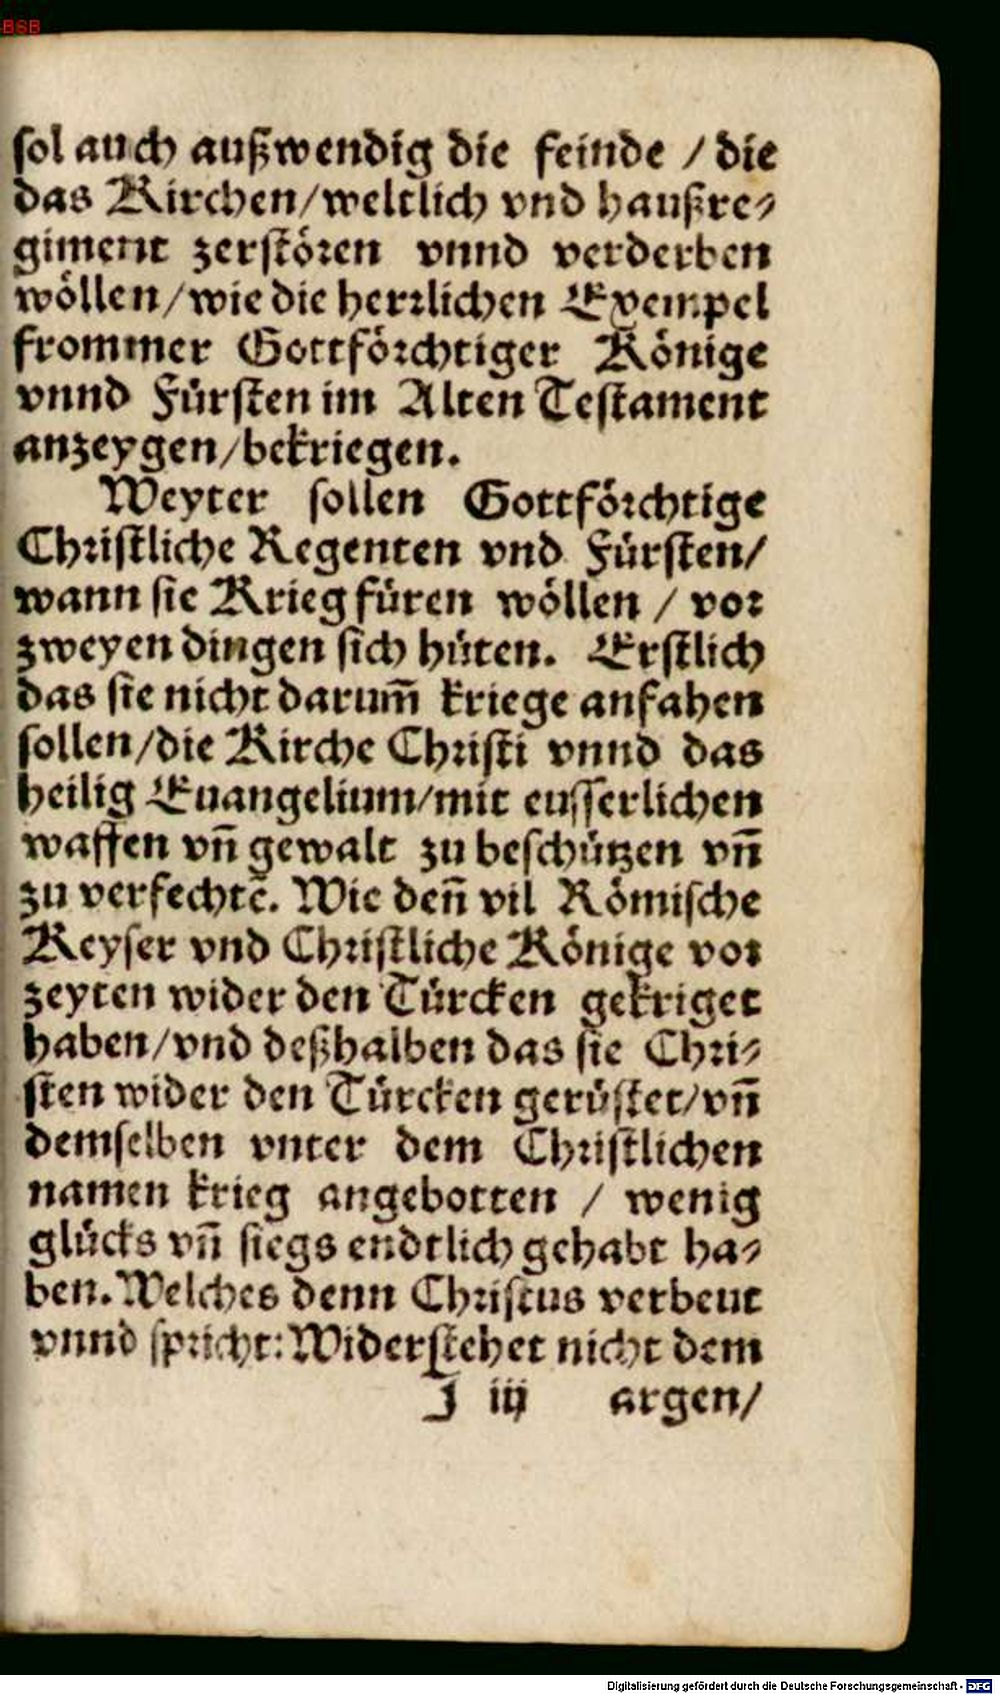 BSB
sol auch außwendig die feinde / die
das Kirchen/weltlich vnd haußre⸗
giment zerstören vnnd verderben
wöllen/wie die herrlichen Exempel
frommer Gottförchtiger Könige
vnnd Fürsten im Alten Testament
anzeygen/bekriegen.
Weyter sollen Gottförchtige
Christliche Regenten vnd Fürsten/
wann sie Krieg füren wöllen / vor
zweyen dingen sich hüten. Erstlich
das sie nicht darum̃ kriege anfahen
sollen/die Kirche Christi vnnd das
heilig Euangelium/mit eusserlichen
waffen vñ gewalt zu beschützen vñ
zu verfechtẽ. Wie deñ vil Römische
Keyser vnd Christliche Könige vor
zeyten wider den Türcken gekriget
haben/vnd deßhalben das sie Chri⸗
sten wider den Türcken gerüstet/vñ
demselben vnter dem Christlichen
namen krieg angebotten / wenig
glücks vñ siegs endtlich gehabt ha⸗
ben. Welches denn Christus verbeut
vnnd spricht: Widerstehet nicht dem
J iij argen/
Digitalisierung gefördert durch die Deutsche Forschungsgemeinschaft - DFG